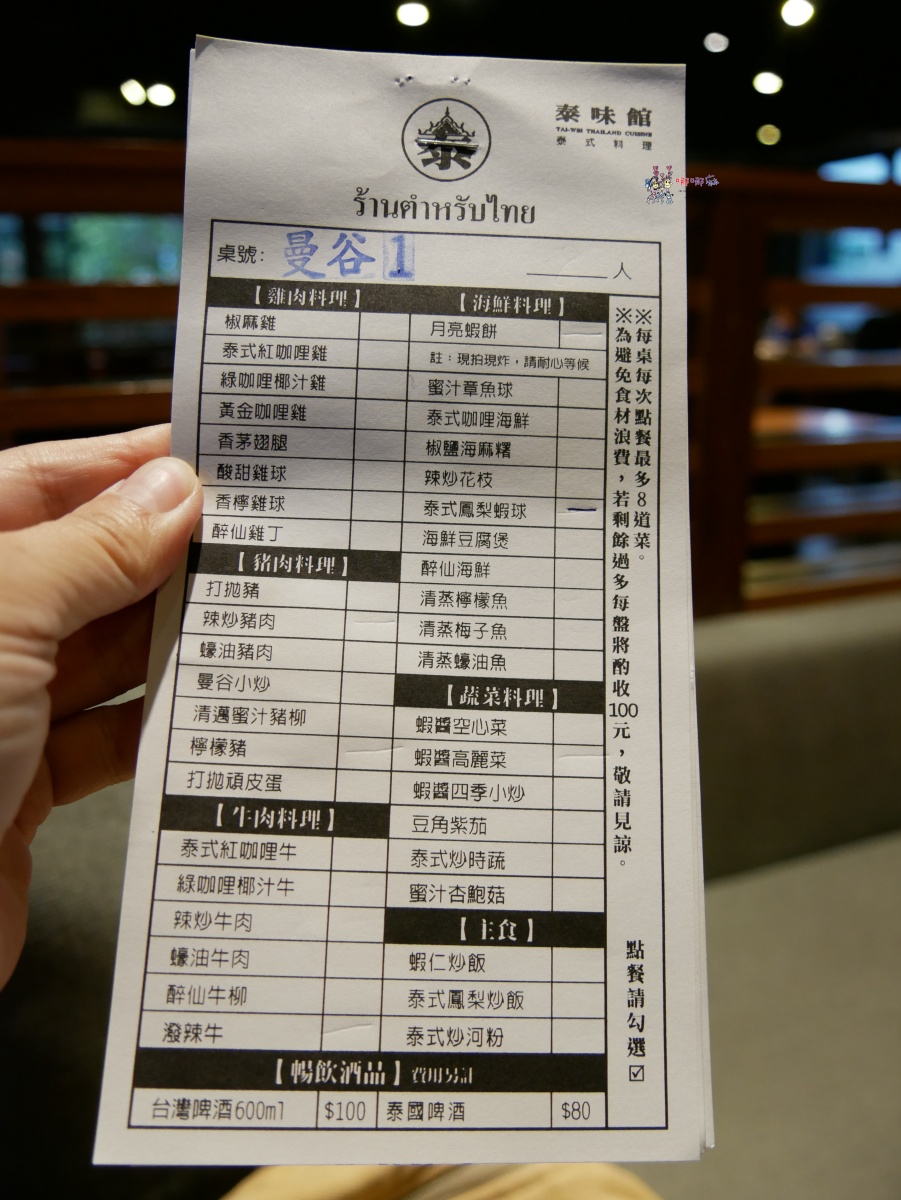 泰
泰味館
TAI-WEI THAILAND CUISINE
泰式料理
ร้านตำหรับไทย
桌號: 曼谷 1 ______人
【雞肉料理】
椒麻雞
泰式紅咖哩雞
綠咖哩椰汁雞
黃金咖哩雞
香茅翅腿
酸甜雞球
香檸雞球
醉仙雞丁
【豬肉料理】
打拋豬
辣炒豬肉
蠔油豬肉
曼谷小炒
清邁蜜汁豬柳
檸檬豬
打拋頑皮蛋
【牛肉料理】
泰式紅咖哩牛
綠咖哩椰汁牛
辣炒牛肉
蠔油牛肉
醉仙牛柳
潑辣牛
【海鮮料理】
月亮蝦餅
註：現拍現炸，請耐心等候
蜜汁章魚球
泰式咖哩海鮮
椒鹽海麻糬
辣炒花枝
泰式鳳梨蝦球
海鮮豆腐煲
醉仙海鮮
清蒸檸檬魚
清蒸梅子魚
清蒸蠔油魚
【蔬菜料理】
蝦醬空心菜
蝦醬高麗菜
蝦醬四季小炒
豆角紫茄
泰式炒時蔬
蜜汁杏鮑菇
【主食】
蝦仁炒飯
泰式鳳梨炒飯
泰式炒河粉
【暢飲酒品】費用另計
台灣啤酒600ml $100 泰國啤酒 $80
※每桌每次點餐最多8道菜。
※為避免食材浪費，若剩餘過多每盤將酌收100元，敬請見諒。
點餐請勾選☑